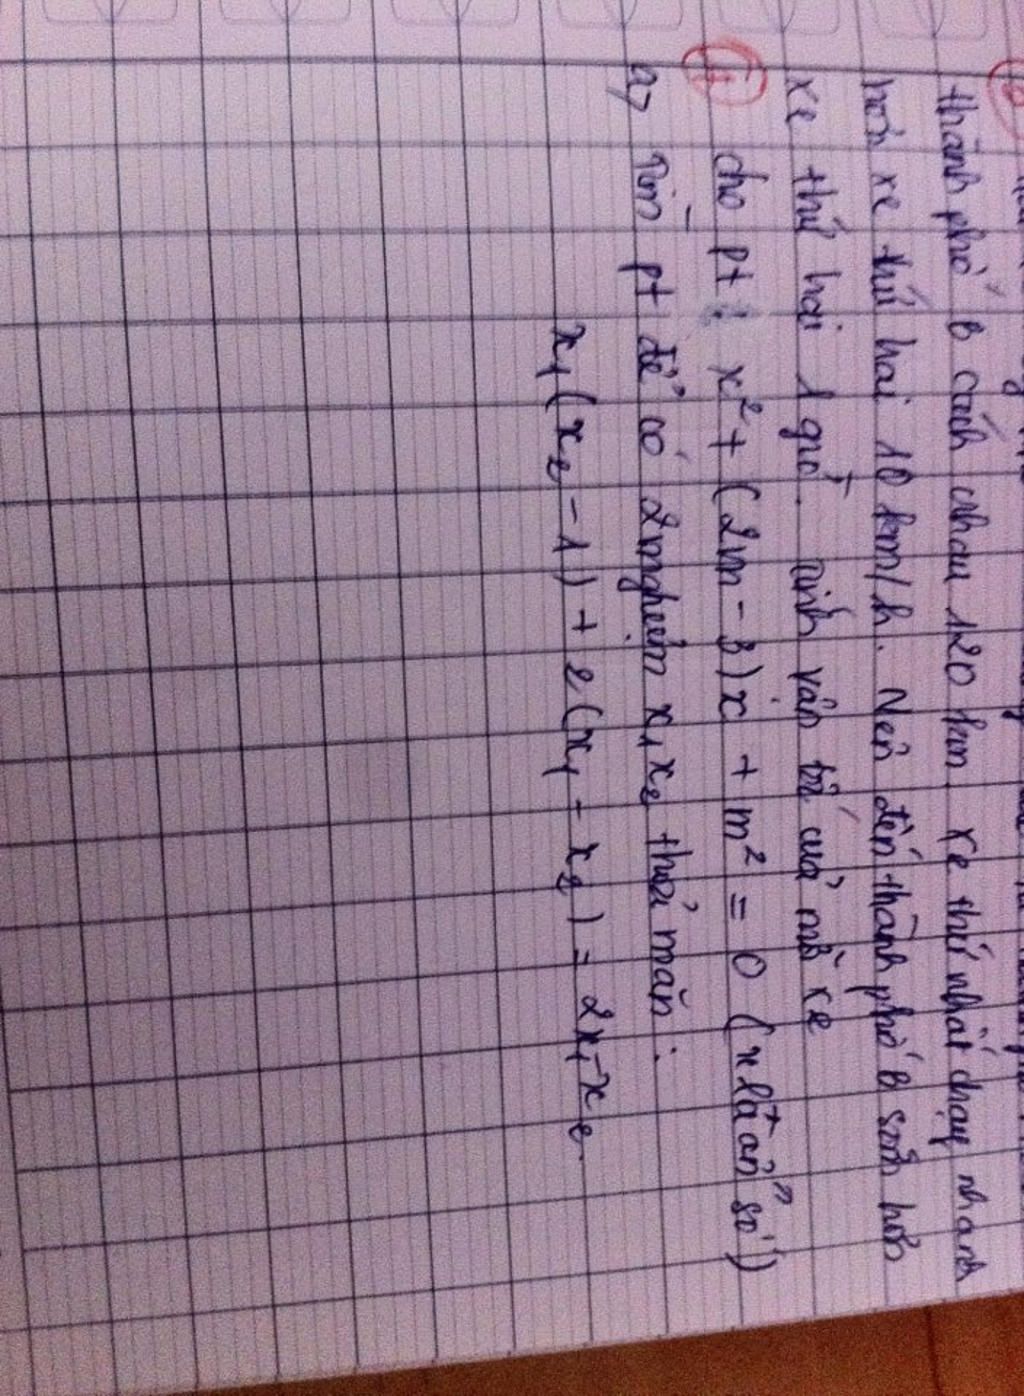 thành phố B cách nhau 120 km. xe thứ nhất chạy nhanh
hơn xe thứ hai 10 km/h. Nên đến thành phố B sớm hơn
xe thứ hai 1 giờ. Tính vận tốc của mỗi xe
cho pt : x² + (2m - 3)x + m² = 0 (x là ẩn số)
a, Tìm pt để có 2 nghiệm x₁ x₂ thoả mãn :
x₁(x₂ - 1) + 2(x₁ - x₂) = 2x₁ - x₂.